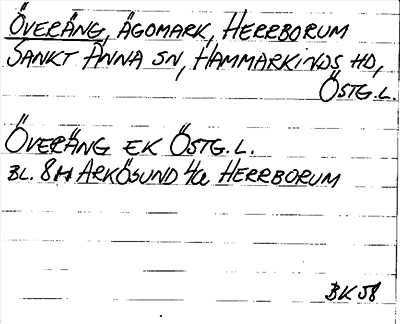 Överäng, Ägomark, Herrborum
Sankt Anna sn, Hammarkinds hd,
Östg.l.
Överäng ek Östg.l.
bl. 8H Arkösund 4a Herrborum
BK 58